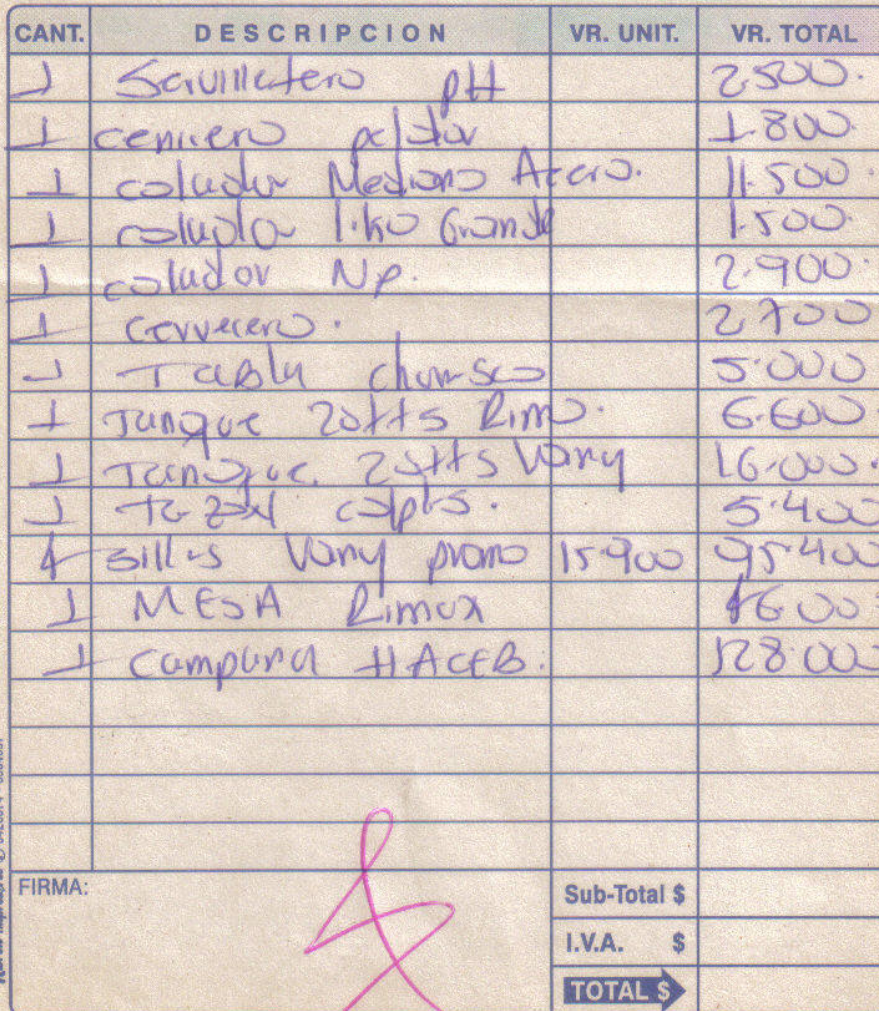 CANT. DESCRIPCION VR. UNIT. VR. TOTAL
1 Servilletero pH 2.500.
1 cenicero peldar 1.800.
1 colador Mediano Acero. 11.500.
1 colador liko Grande 1.500.
1 colador Np. 2.900.
1 cervecero. 2.700
1 Tabla churrasco 5.000
1 Tanque 20lts Rimo. 6.600
1 Tanque 25lts Vany 16.000.
1 Tazon colpls. 5.400
sillas Vany promo 15.900 95.400
1 MESA Rimax
1 Campana HACEB. 128.000
FIRMA:
Sub-Total $
I.V.A. $
TOTAL $